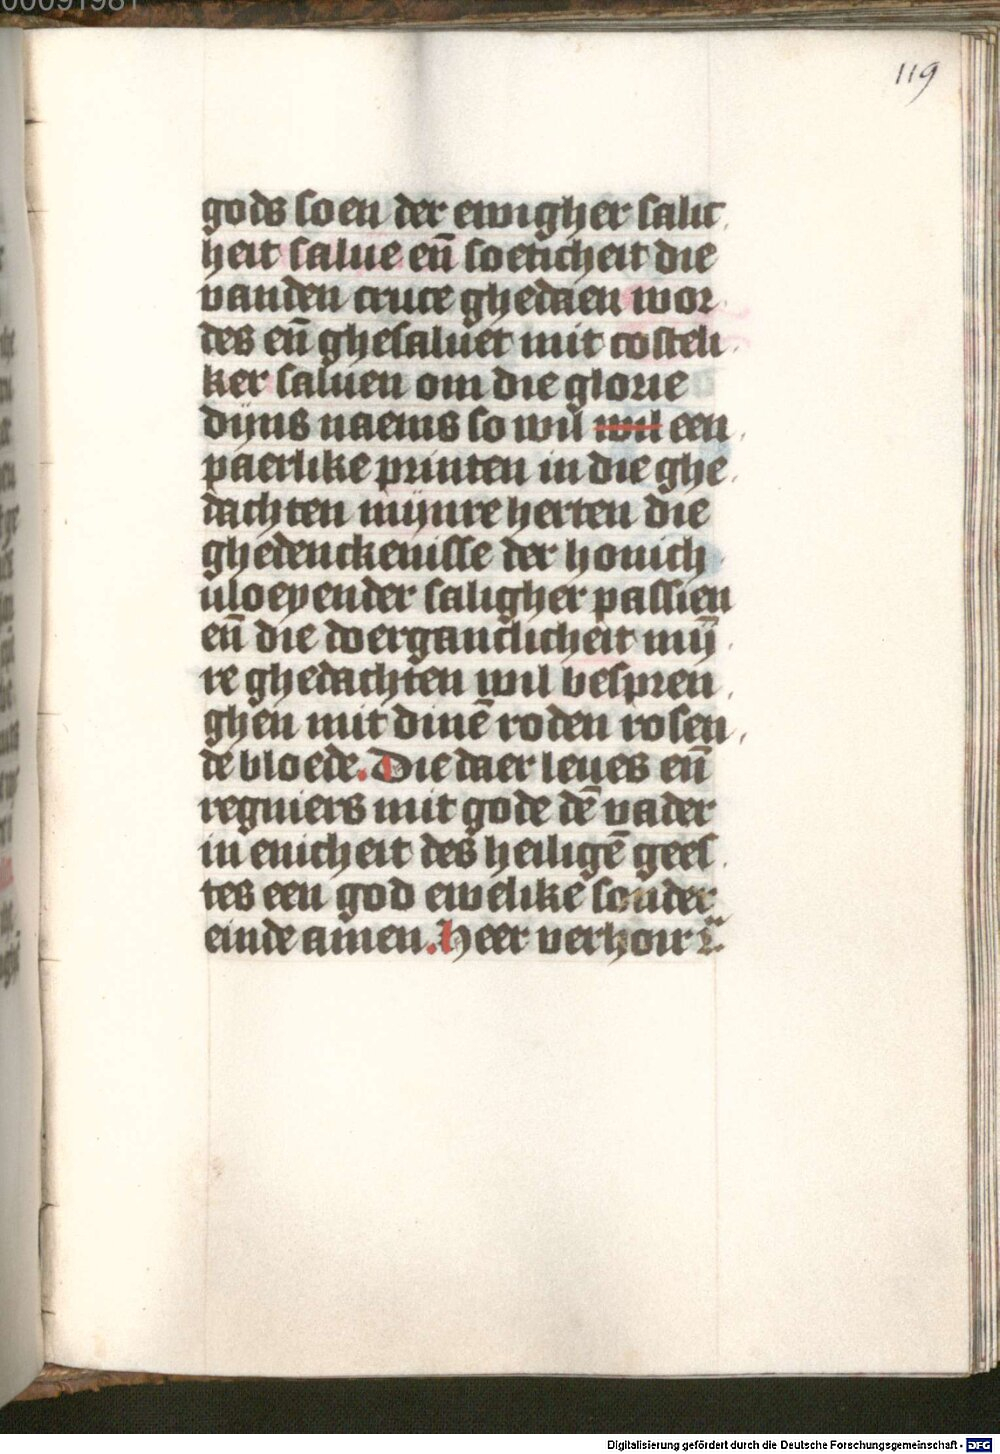 119
gods soen der ewigher salic
heit salue en̄ soeticheit die
vanden cruce ghedaen wor
des en̄ ghesaluet mit costeli
ker saluen om die glorie
dijns naems so wil wil een
paerlike printen in die ghe
dachten mijnre herten die
ghedenckenisse der honich
vloeyender saligher passien
en̄ die doergancklicheit mij̄
re ghedachten wil bespren
ghen mit dinē roden rosen
de bloede. Die daer leues en̄
regniers mit gode dē vader
in enicheit des heiligē gees
tes een god ewelike sonder
einde amen. Heer verhoir
Digitalisierung gefördert durch die Deutsche Forschungsgemeinschaft - DFG